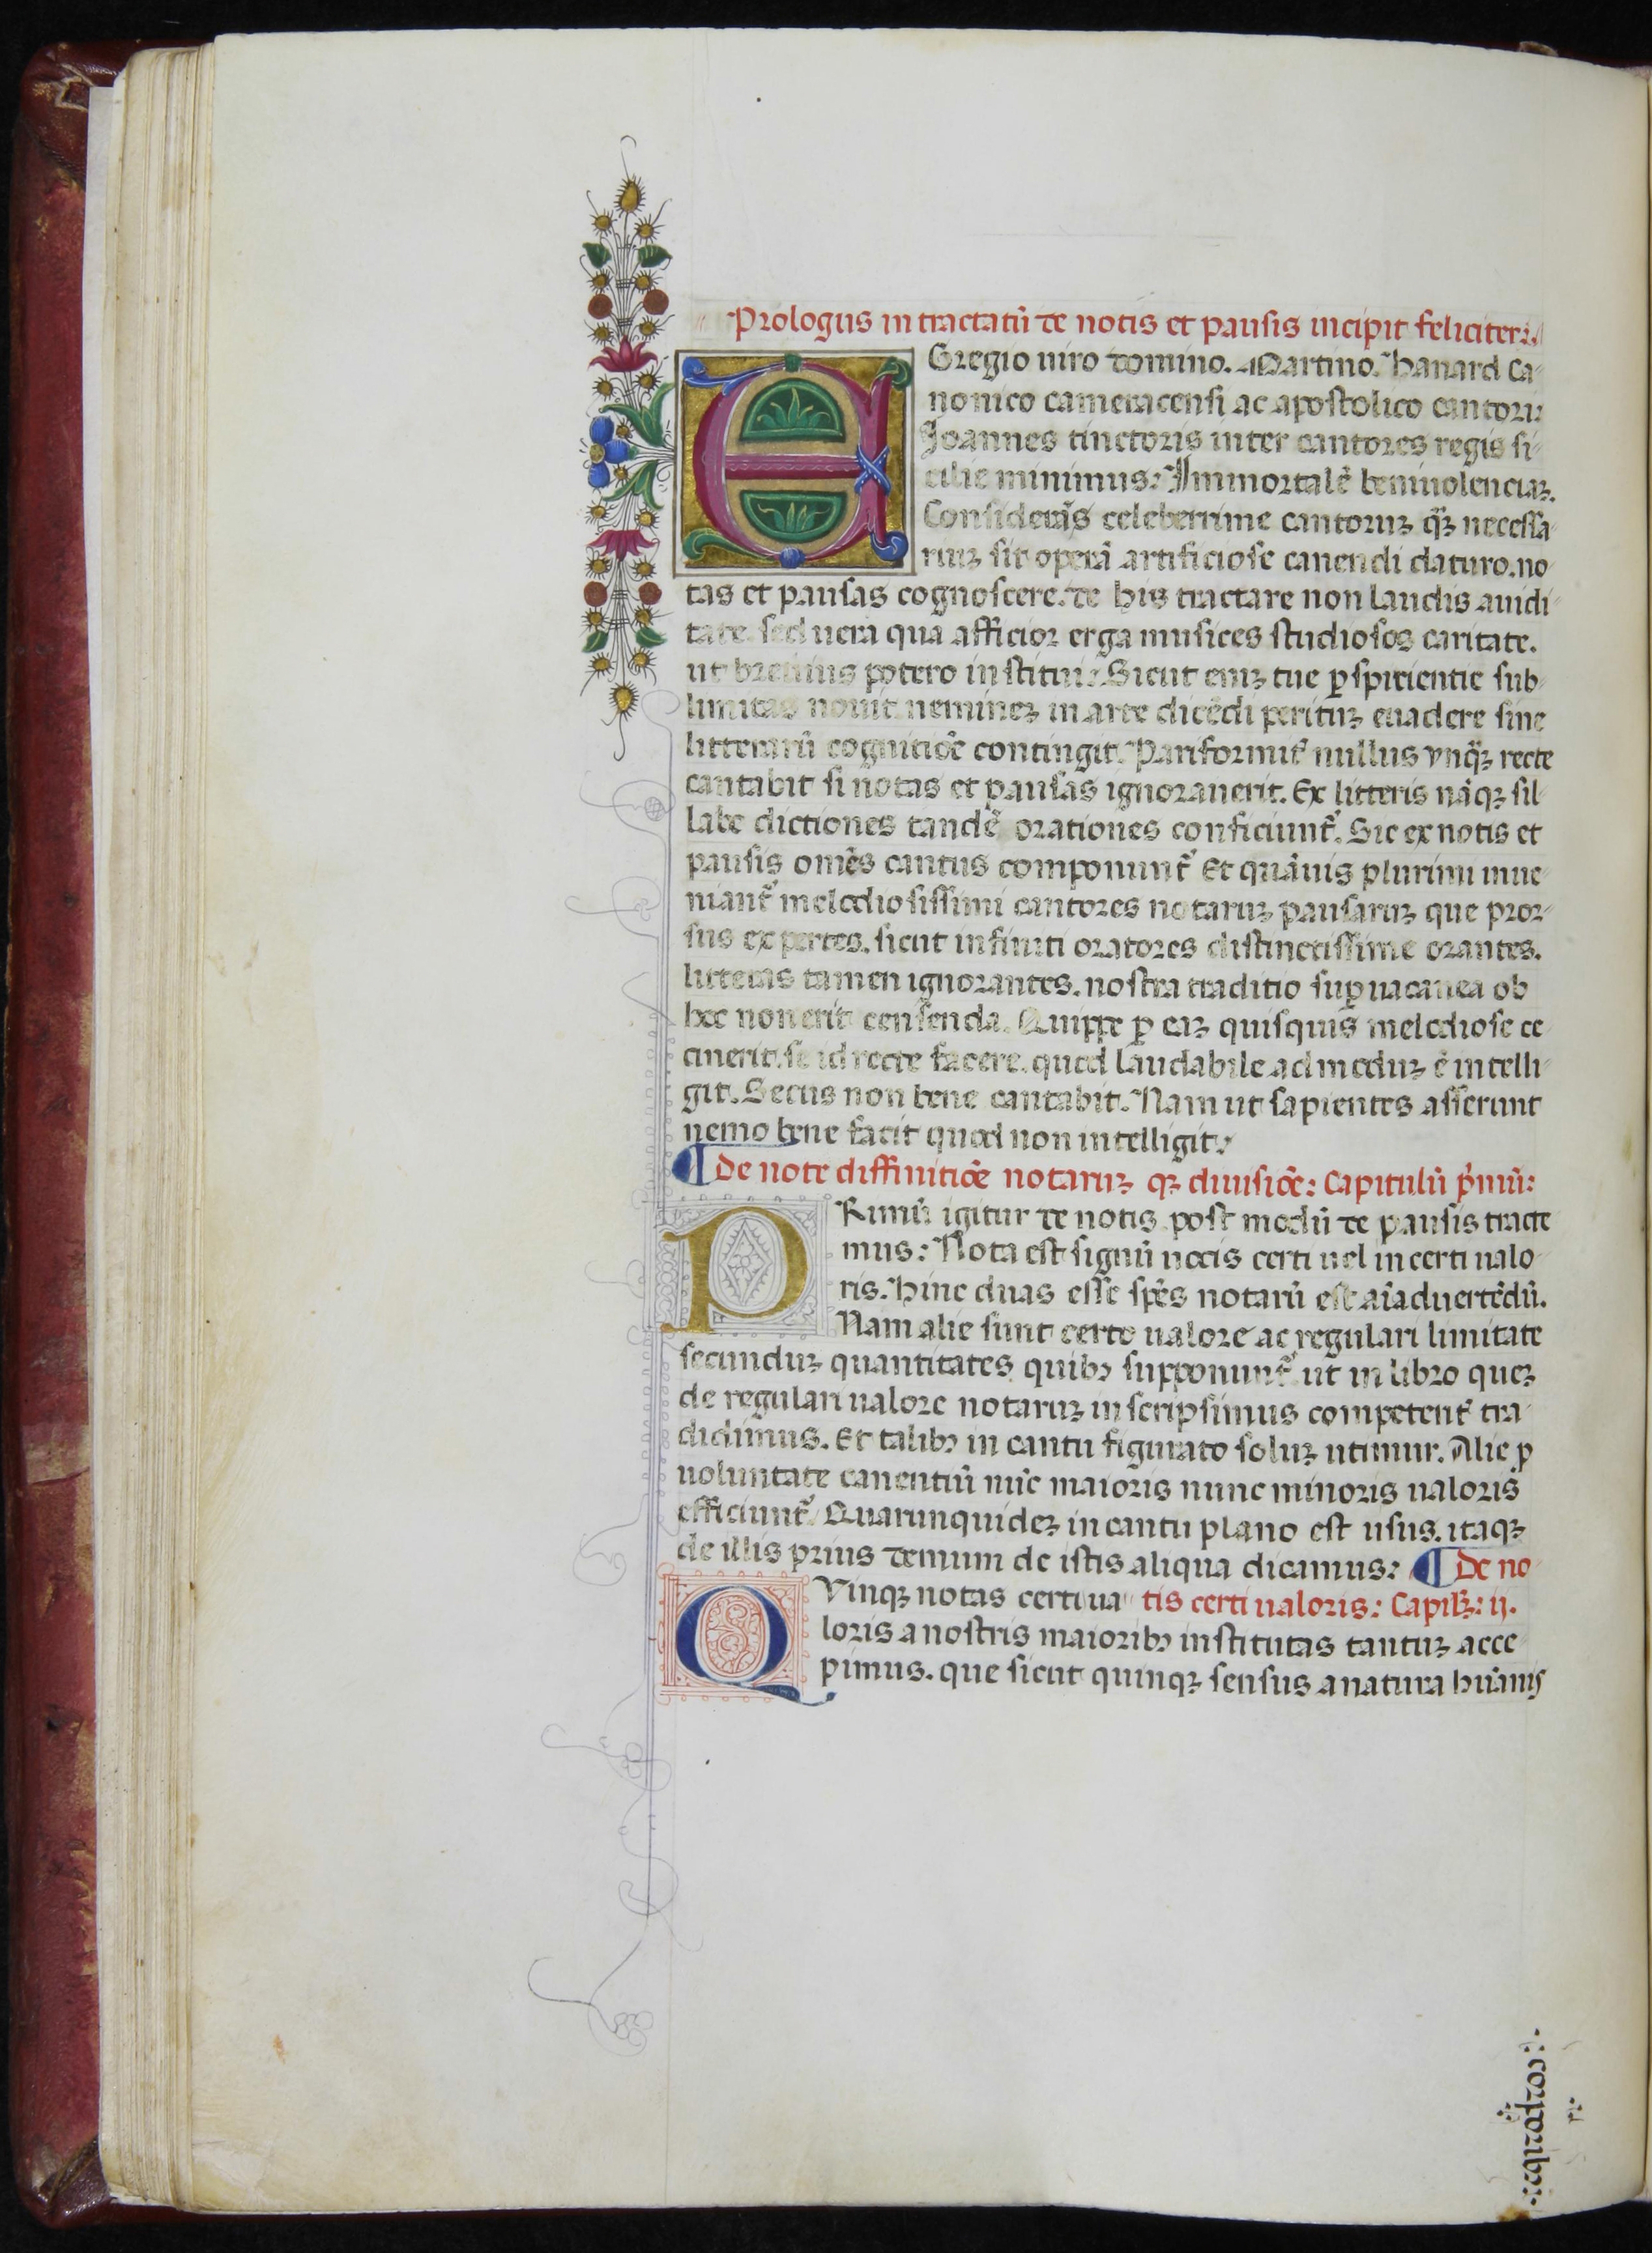 Prologus in tractatū de notis et pausis incipit feliciter:
EGregio uiro domino. Martino. hanard Ca-
nonico cameracensi ac apostolico cantori:
Joannes tinctoris inter cantores regis si-
cilie minimus: Immortalē beniuolenciaꝫ.
Considerās celeberrime cantoruꝫ qꝫ necessa-
riuꝫ sit operā artificiose canendi daturo. no-
tas et pausas cognoscere. de his tractare non laudis auidi-
tate. sed uera qua afficior erga musices studiosos caritate.
ut breuius potero institui: Sicut eniꝫ tue ꝑspicientie sub-
limitas nouit. nemineꝫ in arte dicēdi perituꝫ euadere sine
litterarū cognitiōe contingit. Pariformit̄ nullus vnqꝫ recte
cantabit si notas et pausas ignorauerit. Ex litteris nāqꝫ sil-
labe dictiones tandē orationes conficiunt̄. Sic ex notis et
pausis omēs cantus componunt̄ Et quāuis plurimi inue-
niant̄ melodiosissimi cantores notaruꝫ pausaruꝫ que pror-
sus expertes. sicut infiniti oratores distinctissime orantes.
litteras tamen ignorantes. nostra traditio suꝑuacanea ob
hoc non erit censenda. Quippe ꝑ eaꝫ quisquis melodiose ce-
cinerit. se id recte facere. quod laudabile admoduꝫ ē intelli-
git. Secus non bene cantabit. Nam ut sapientes asserunt
nemo bene facit quod non intelligit:
¶ De note diffinitiōe notaruꝫ qꝫ diuisiōe: Capitulū pⁱmū:
PRimū igitur de notis post modū de pausis tracte
mus: Nota est signū uocis certi uel incerti ualo-
ris. hinc duas esse spēs notarū est aīaduertēdū.
Nam alie sunt certo ualore ac regulari limitate
secunduꝫ quantitates quibꝰ supponunt̄ ut in libro queꝫ
de regulari ualore notaruꝫ inscripsimus competent̄ tra-
didimus. Et talibꝰ in cantu figurato soluꝫ utimur. Alie ꝑ
uoluntate canentiū nūc maioris nunc minoris ualoris
efficiunt̄. Quarunquideꝫ in cantu plano est usus. itaqꝫ
de illis prius demum de istis aliqua dicamus: ¶ De no-
tis certi ualoris: Capitlꝫ: ij.
QVinqꝫ notas certi ua-
loris a nostris maioribꝰ institutas tantuꝫ acce-
pimus. que sicut quinqꝫ sensus a natura hūanis
corporibꝰ